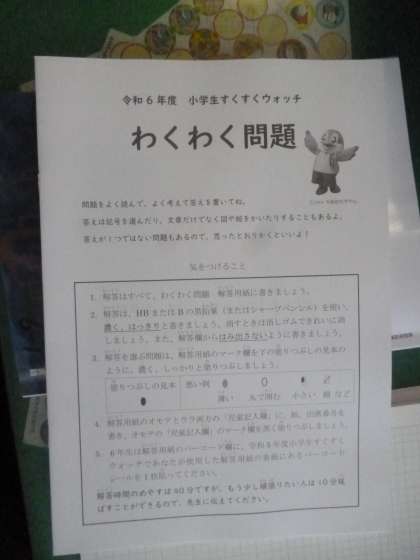 令和６年度　小学生すくすくウォッチ
わくわく問題
問題をよく読んで、よく考えて答えを書いてね。
答えは記号を選んだり、文章だけでなく図や絵をかいたりすることもあるよ。
答えが１つではない問題もあるので、思ったとおりかくといいよ！
気をつけること
1. 解答はすべて、わくわく問題　解答用紙に書きましょう。
2. 解答は、HB または B の黒鉛筆（またはシャープペンシル）を使い、
濃く、はっきりと書きましょう。消すときは消しゴムできれいに消
しましょう。また、解答欄からはみ出さないように書きましょう。
3. 解答を選ぶ問題は、解答用紙のマーク欄を下の塗りつぶしの見本
のように、濃く、しっかりと塗りつぶしましょう。
塗りつぶしの見本
悪い例
薄い
丸で囲む
小さい
など
4. 解答用紙のオモテとウラ両方の「児童記入欄」に、組、出席番号を
書き、オモテの「児童記入欄」のマーク欄を黒く塗りつぶしましょう。
5. ６年生は解答用紙のバーコード欄に、令和５年度小学生すくすく
ウォッチであなたが使用した解答用紙の表面にあるバーコード
シールを１枚貼ってください。
解答時間のめやすは40分ですが、もう少し頑張りたい人は10分延
ばすことができるので、先生に伝えてください。